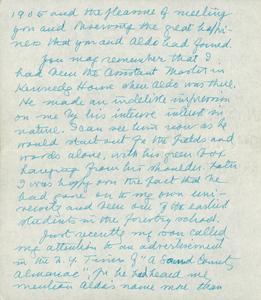 1905 and the pleasure of meeting
you and observing the great happi-
ness that you and Aldo had found.
You may remember that I
had been the Assistant Master in
Kennedy House when Aldo was there.
He made an indelible impression
on me by his intense interest in
nature. I can see him now as he
would start out to the fields and
woods alone, with his green box
hanging from his shoulder. Later
I was happy over the fact that he
had gone on to my own uni-
versity and been one of the earliest
students in the forestry school.
Just recently my son called
my attention to an advertisement
in the N.Y. Times of "A Sand County
Almanac", for he had heard me
mention Aldo's name more than